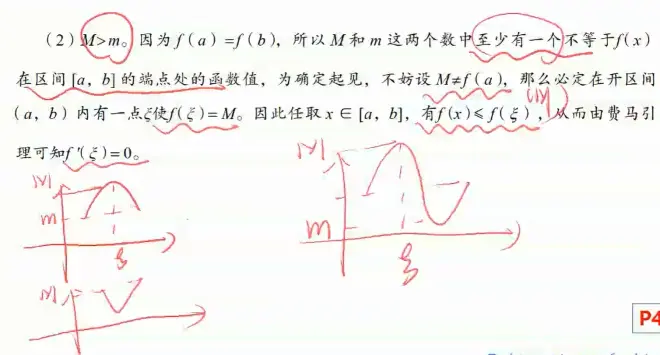 （2）M>m。因为f(a)=f(b)，所以M和m这两个数中至少有一个不等于f(x)
在区间[a, b]的端点处的函数值，为确定起见，不妨设M≠f(a)，那么必定在开区间
（a, b）内有一点ξ使f(ξ)=M。因此任取x∈[a, b]，有f(x)≤f(ξ)，从而由费马引
(M)
理可知f'(ξ)=0。
M
m
ξ
M
M
m
ξ
P4